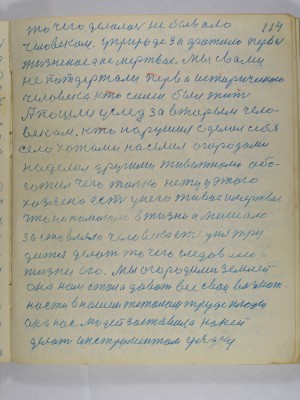 то чего делалось не бывало 114
человеком. Природа затратила первая
жизненное мертвое Мы с вами
не поддержали перво исторического
человека кто сили были жит
А пошли услед за вторым чело-
веком. кто нарушил сделал себе
село хатами населил огородами
наделил другими животном обо-
гатил чего только нету у этого
хозяина есть у него живое и мертвое
что и помогало в жизни а мешало
заставляло человека ему
делат то чего следовало
жизни его. Мы огородили землей
она нам стала давать все свои возмож-
ности в нашем таком труде плоды
она нас людей заставила на ней
делат инструментом грядку